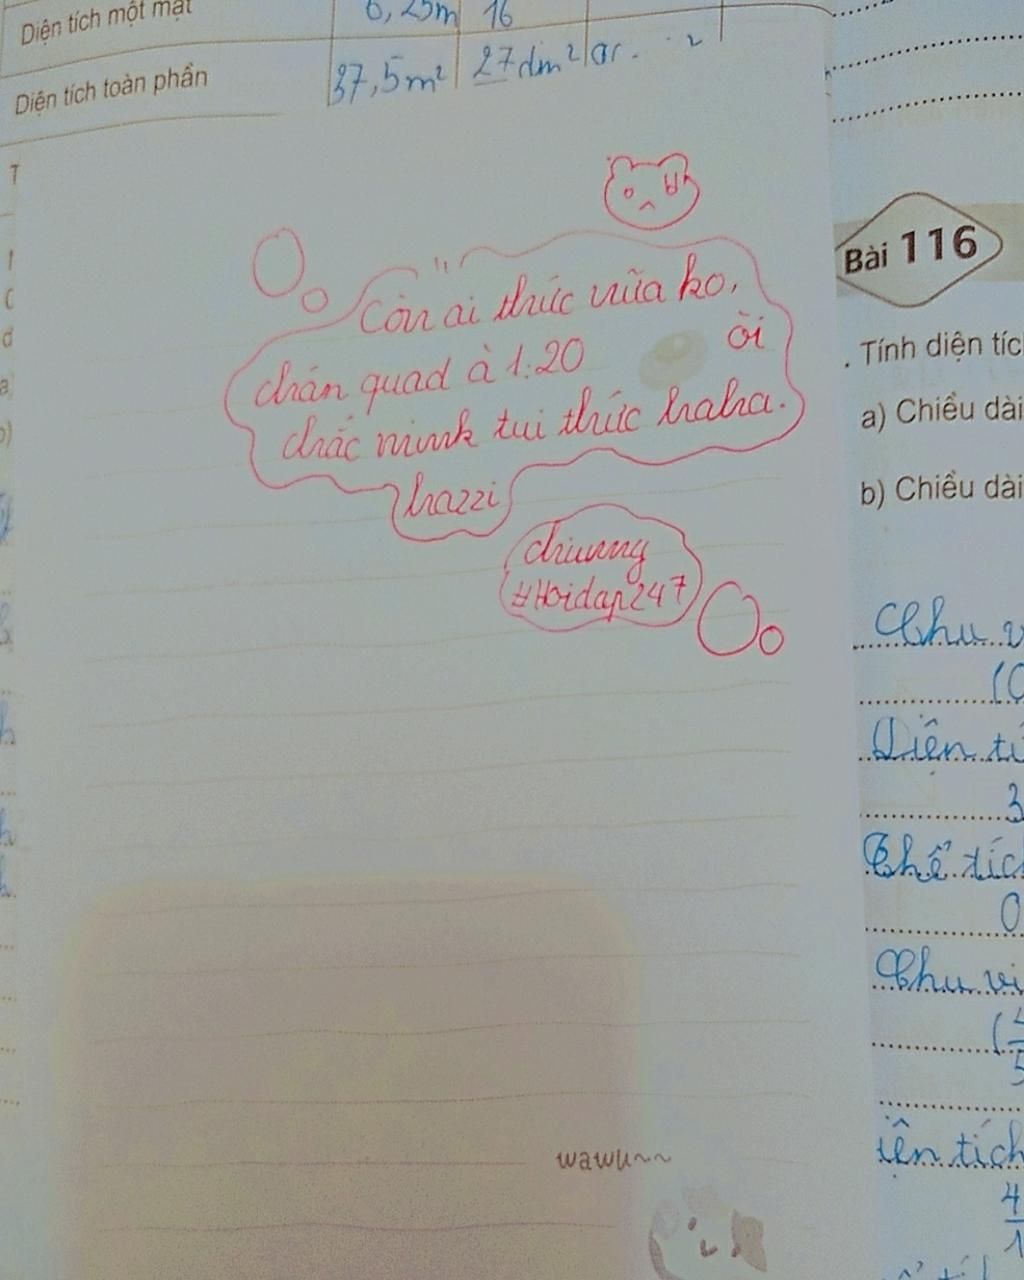 Diện tích một mặt 6,25m 16
Diện tích toàn phần 37,5m² 27dm²
Còn ai thức nữa ko,
chán quad à 1:20 òi
chắc mình tui thức haha.
hazzi
chiuong
#Hoidap247
wawu~~
Bài 116
. Tính diện tíc
a) Chiều dài
b) Chiều dài
Chu v
(0
Diện tí
3
Thể tíc
0
Chu vi
(4
5
iện tích
4
1